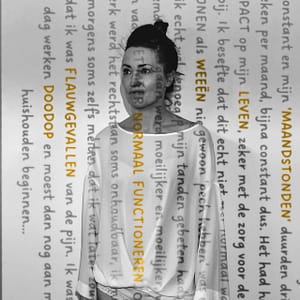 constant en mijn MAANDSTONDEN duurden
ken per maand, bijna constant dus. Het had
PACT op mijn LEVEN, zeker met de zorg voor de
ij. Ik besefte dat dit echt niet normaal
NEN als WEEËN gewoon pech hebben
k echt genoeg mijn tanden gebeten
moeilijker en moeilijker
NORMAAL FUNCTIONEREN
rk werd het soms onhoudbaar. ik
morgens soms zelfs dat ik wat later
dat ik was FLAUWGEVALLEN van de pijn. Ik was
dag werken DOODOP en moest dan nog aan
huishouden beginnen...